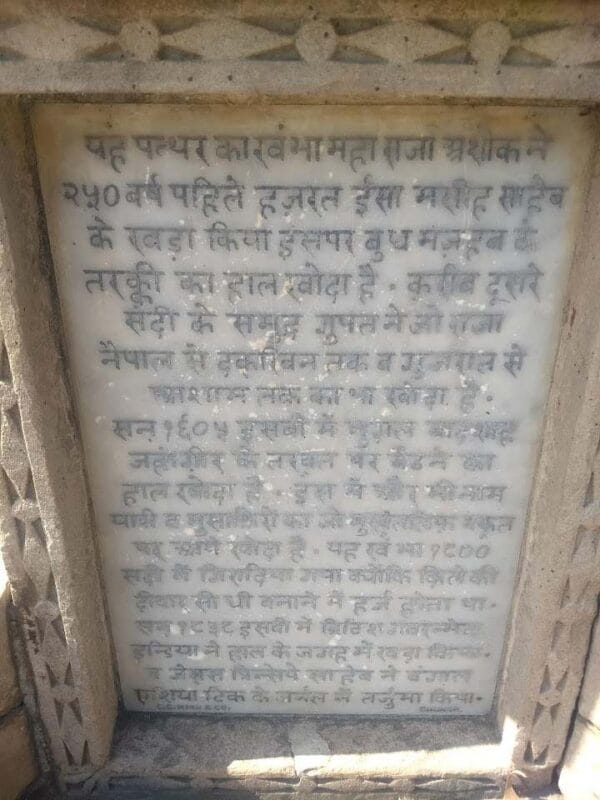 यह पत्थर का खंभा महा राजा अशोक ने
२५० बर्ष पहिले हज़रत ईसा मसीह साहेब
के खड़ा किया इसपर बुध मज़हब के
तरक्की का हाल खोदा है . क़रीब दूसरे
सदी के समुद्र गुपत ने जो राजा
नैपाल से दकखिन तक व गुजरात से
आशाम तक का था खोदा है .
सन् १६०५ इसवी में मुग़ल बादशाह
जहांगीर के तख़्त पर बैठने का
हाल खोदा है . इस में और भी नाम
यात्री व मुसाफ़िरों का जो वक़्त
पर आये खोदा है . यह खंभा १८००
सदी में गिरादिया गया क्योंकि क़िले की
दीवार सीधी बनाने में हर्ज होता था .
सन् १८३८ इसवी में ब्रिटिश गवरन्मेन्ट
इन्डिया ने हाल के जगह में खड़ा किया .
व जेमस प्रिन्सेप साहेब ने बंगाल
एशिया टिक के जर्नल में तर्जुमा किया .
& CO.